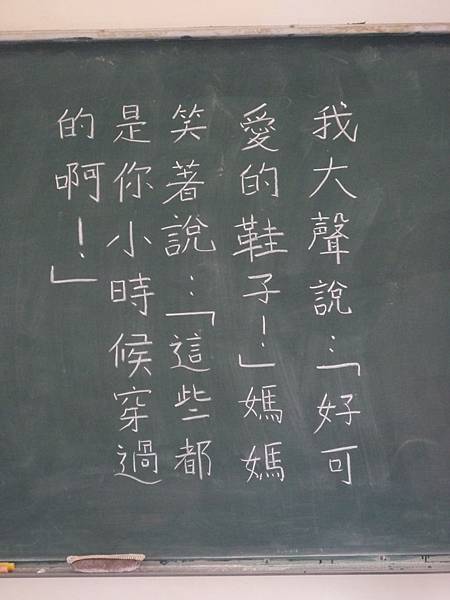 我大聲說：「好可
愛的鞋子！」媽媽
笑著說：「這些都
是你小時候穿過
的啊！」